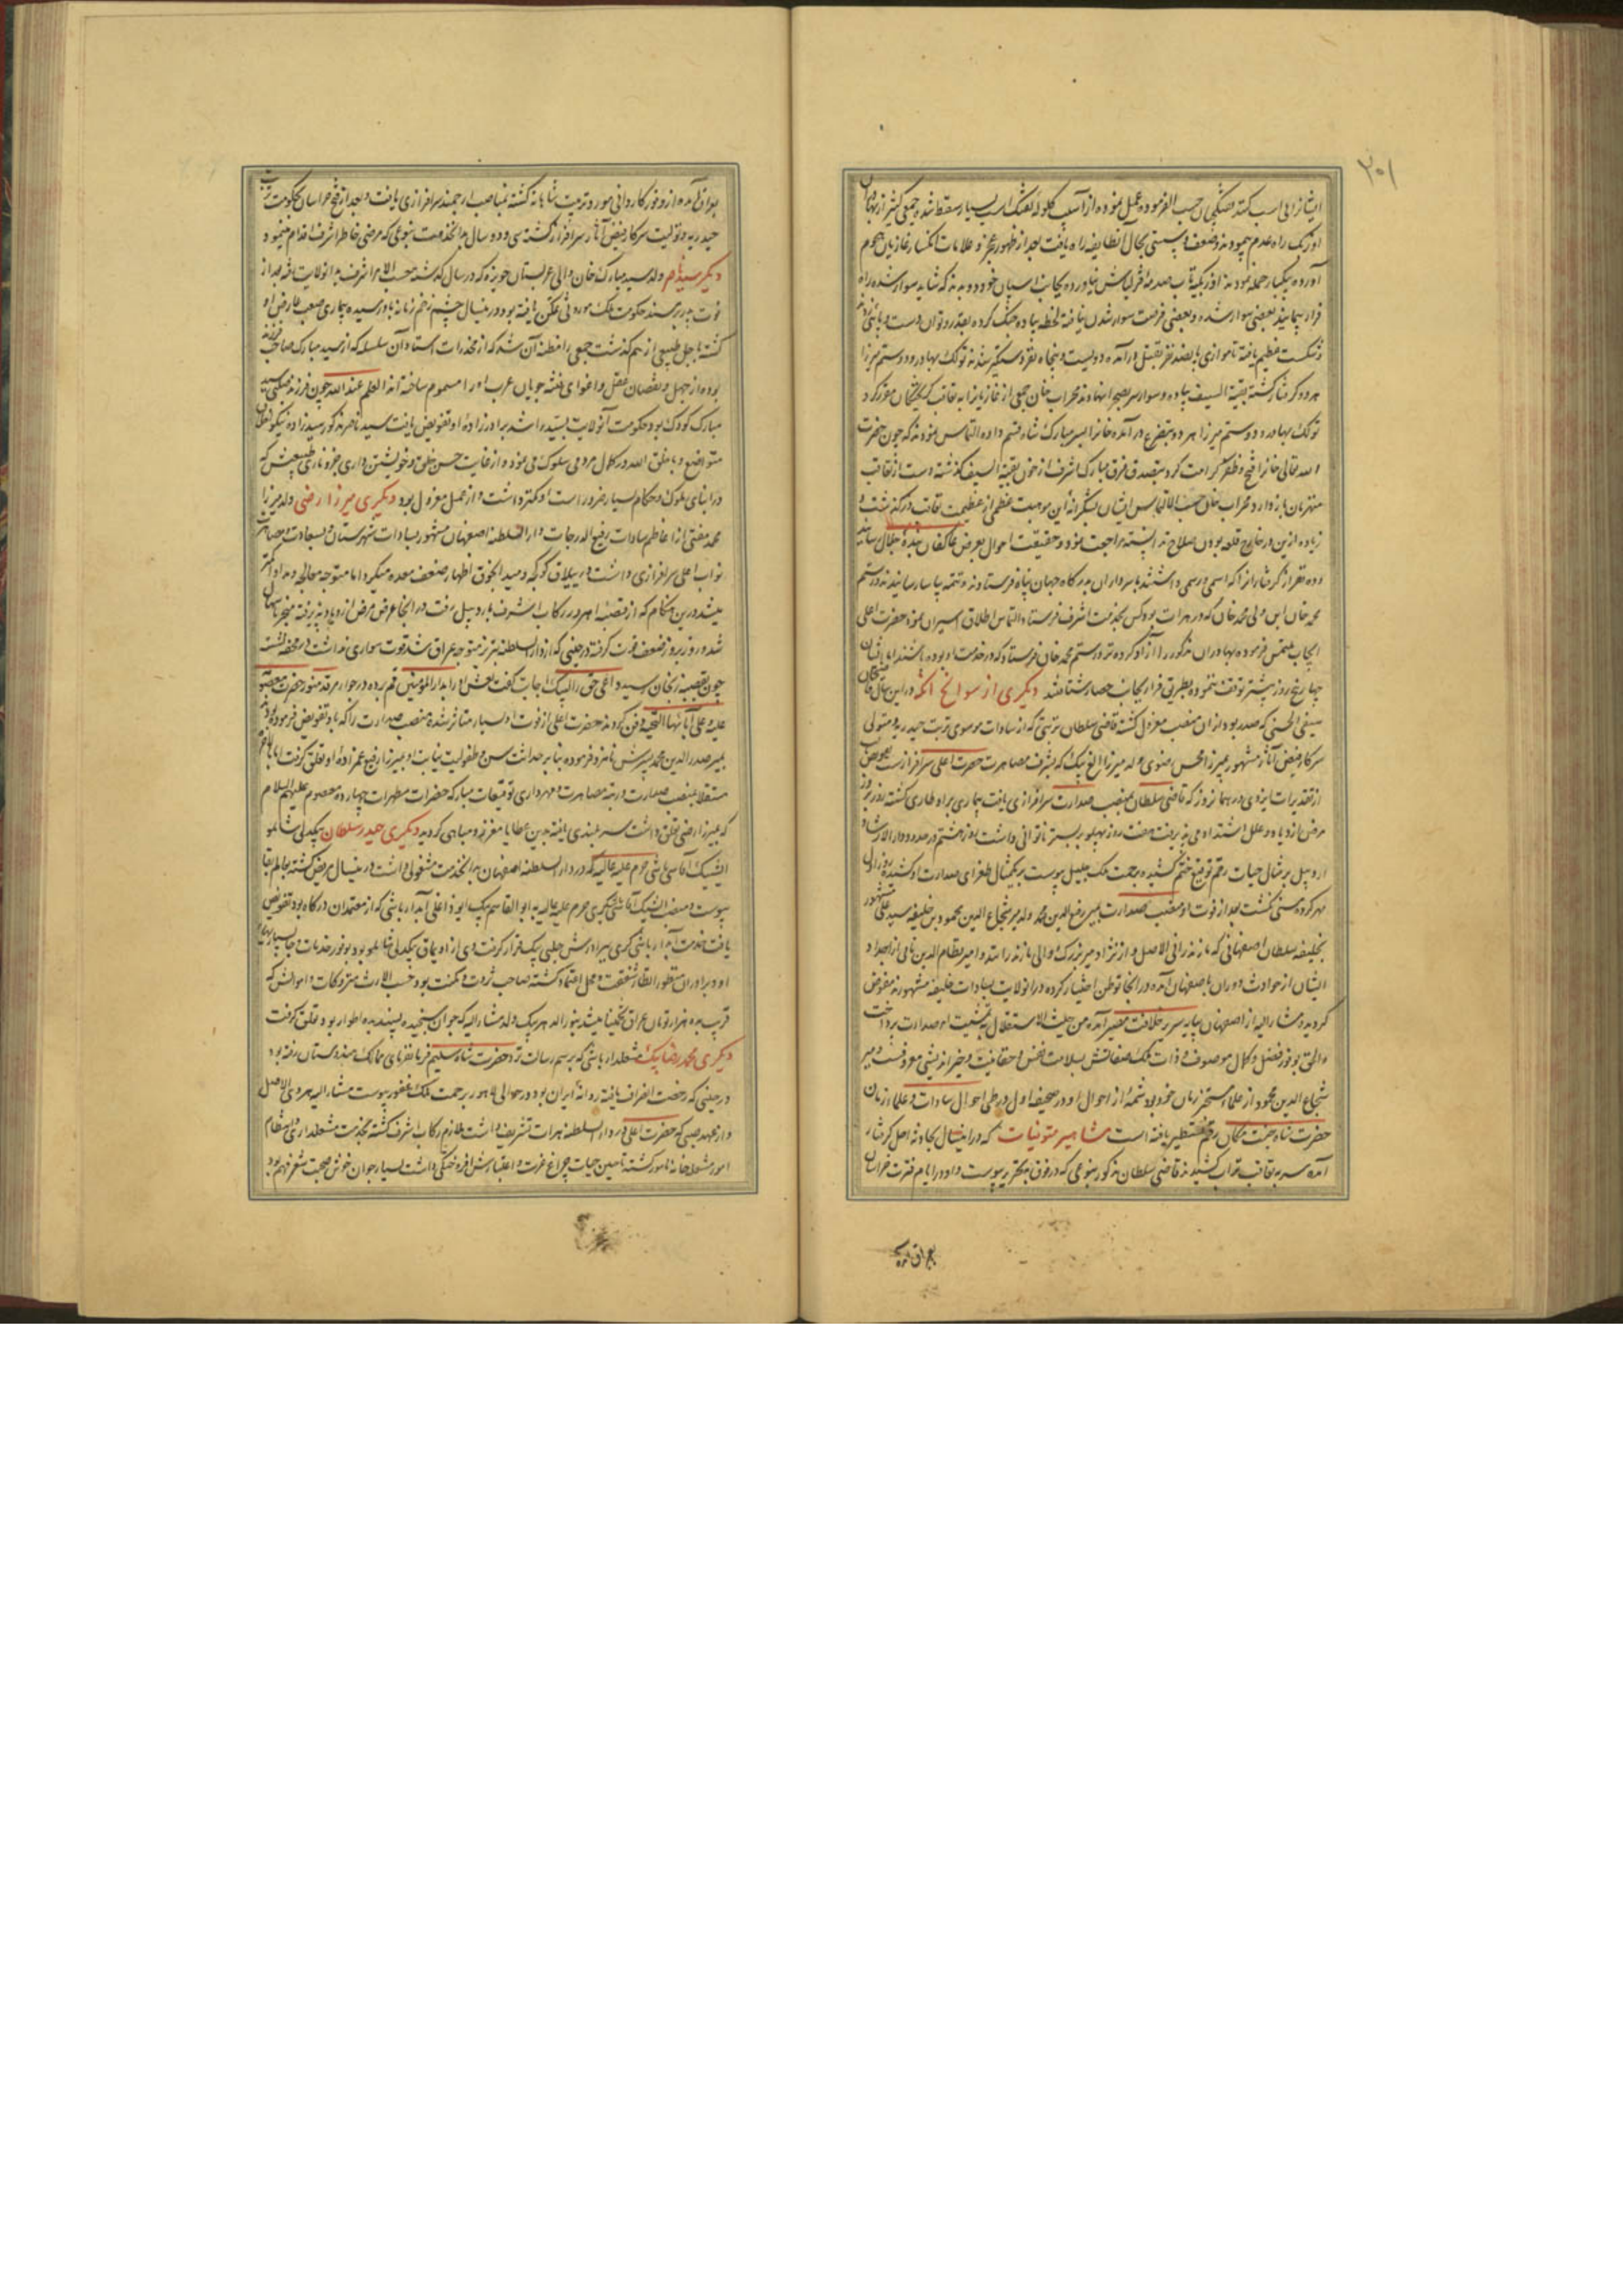 ۲۰۱
ایشانرا بی اسب کنند تفنگچیان حسب الفرموده عمل نموده از آسیب گلوله تفنگ اسب بسیار سقط شده جمعی کثیر از بهادران
اوزبک راه عدم پیمودند و ضعف و سستی بحال انطایفه راه یافت بعد از ظهور عجز و علامات انکسار غازیان هجوم
آورده بیکبار حمله نمودند اوزبکیه تاب صدمه قزلباش نیاورده بجانب اسپان خود دویدند که شاید سوار شده راه
فرار پیمایند بعضی سوار شده و بعضی فرصت سوار شدن نیافته لحظه پیاده جنگ کرده بقدر توان دست و پائی زدند
و شکست عظیم یافته تا موازی پانصد نفر بقتل درآمده دویست و پنجاه نفر دستگیر شدند توکک بهادر و دوستم میرزا
هردو گرفتار گشته بقیة السیف پیاده و سوار سر بصحرا نهادند محراب خان جمعی از غازیانرا به تعاقب گریختگان مقرر کرد
توکک بهادر و دوستم میرزا هر دو بتضرع درآمده خانرا بسر مبارک شاه قسم داده التماس نمودند که چون حضرت
الله تعالی خانرا فتح و ظفر کرامت کرد بتصدق فرق مبارک اشرف از خون بقیة السیف گذشته دست از تعاقب
منهزمان بازدارد محراب خان حسب الالتماس ایشان بشکرانه این موهبت عظمی از عظیمت تعاقب درگذشت و
زیاده ازین در خارج قلعه بودن صلاح ندانسته مراجعت نمود و حقیقت احوال بعرض عاکفان سده جلال رسانید
و ده نفر از گرفتارانرا که اسمی و رسمی داشتند با سرداران بدرگاه جهان پناه فرستادند و تتمه بیاسا رسانیدند رستم
محمد خان ابن ولی محمد خان که در هرات بود کس بخدمت اشرف فرستاد التماس اطلاق اسیران نمود حضرت اعلی
ایجاب ملتمس فرموده بهادران مذکور را آزاد کرده نزد رستم محمد خان فرستاد که در خدمت او بوده باشند
چهار پنج روز بیشتر توقف ننموده بطریق فرار بجانب حصار شتافتند دیگری از سوانح آنکه در این سال
سیفی الحسنی که صدر بود ازان منصب معزول گشته قاضی سلطان تربتی که از سادات موسوی تربت حیدریه و متولی
سرکار فیض آثار مشهور بمیرزا محسن رضوی ولد میرزا الغ بیک که بشرف مصاهرت حضرت اعلی سرافراز است
از تقدیرات ایزدی در همانروز که قاضی سلطان بمنصب صدارت سرافرازی یافت بیماری بر او طاری گشته روز بروز
مرض ازدیاد و علل اشتداد می پذیرفت هفت روز پهلو بر بستر ناتوانی داشت روز هشتم در صدد دار الارشاد
اردبیل بر مثال حیات رقم توقیع ختم کشیده برحمت ملک جلیل پیوست
مهر کرده سنی گذشت بعد از فوت او منصب صدارت بمیر رفیع الدین محمد ولد میر شجاع الدین محمود بن خلیفه سید علی مشهور
بخلیفه سلطان اصفهانی که مازندرانی الاصل و از نژاد میر بزرگ والی مازندرانند و امیر نظام الدین نامی از اجداد
ایشان از حوادث دوران باصفهان آمده در انجا توطن اختیار کرده در انولایت بسادات خلیفه مشهورند مفوض
گردید و مشارالیه از اصفهان بپایه سریر خلافت مصیر آمده من حیث الاستقلال بتمشیت امر صدارت پرداخت
والحق بوفور فضل و کمال موصوف و ذات ملک صفاتش بسلامت نفس و حقانیت و خیر اندیشی معروفست و میر
شجاع الدین محمود از علماء متبحر زمان خود بود شمه از احوال او در صحیفه اول در طی احوال سادات و علماء زمان
حضرت شاه جنت مکان رقم تسطیر یافته است مشاهیر متوفیات که در اینسال بحادثه اجل گرفتار
آمده سر به نقاب تراب کشیدند قاضی سلطان مذکور بنوعی که در فوق بتحریر پیوست و او در ایام فترت خراسان
بعراق آمده
بعراق آمده از وفور کاردانی مورد تربیت شاهانه گشته بمناصب ارجمند سرافرازی یافت و بعد از فتح خراسان بحکومت تربت
حیدریه و تولیت سرکار فیض آثار سرافراز گشته سی و ده سال بدانخدمت بنوعی که مرضی خاطر اشرف اقدام مینمود
دیگر سید ناصر ولد سید مبارک خان والی عربستان حویزه که در سال گذشته حسب الامر اشرف بدانولایت رفته بعد از
فوت پدر بر مسند حکومت ملک موروثی تمکن یافته بود در اینسال چشم زخم زمانه بدو رسیده بیماری صعب عارض او
گشته باجل طبیعی از هم گذشت جمعی را مظنه آن شد که از مخدرات استاده آن سلسله که از سید مبارک صاحب فرزند
بوده از جهل و نقصان عقل و اغوای فتنه جویان عرب او را مسموم ساخته اند العلم عند الله چون فرزند صلبی سید
مبارک کودک بود حکومت آنولایت بسید راشد برادرزاده او تفویض یافت سید ناصر مذکور سیدزاده نیکو خصال
متواضع و با خلق الله در کمال مردمی سلوک می نمود و از غایت حسن خلق و خویشتن داری
در ابنای ملوک و حکام بسیار ضرور است او کمتر داشت و از عمل معزول بود دیگری میرزا رضی ولد میرزا
محمد مفتی از اعاظم سادات رفیع الدرجات دار السلطنه اصفهان مشهور بسادات شهرستان و بسعادت مصاهرت
نواب اعلی سرافرازی داشت در ییلاق کوکجه و مید انجوق اظهار ضعف معده میکرد اما متوجه معالجه و مداوا کمتر
میشد درین هنگام که از قصبه اهر در رکاب اشرف باردبیل رفت در انجا عرض مرض ازدیاد پذیرفته منجر باسهال
شد و روز بروز ضعف قوت گرفته در حینی که از دار السلطنه تبریز متوجه عراق شد قوت سواری نداشت در محفه نشسته
چون بقصبه زنجان رسید داعی حق را لبیک اجابت گفت نعش او را بدار المؤمنین قم برده در جوار مرقد منور حضرت معصومه
علیه و علی آبائها التحیه دفن کردند حضرت اعلی از فوت او بسیار متاثر شده منصب صدارت را که باو تفویض فرموده بودند
بمیر صدر الدین محمد پسرش نامزد فرموده بنا بر حداثت سن و طفولیت نیابت او بمیرزا رفیع عمزاده او تعلق گرفت
مستقلا بمنصب صدارت و رتبه مصاهرت و مهرداری توقیعات مبارکه حضرات مطهرات چهارده معصوم علیهم السلام
که بمیرزا رضی تعلق داشت سربلندی یافته بدین عطایا معزز و مباهی گردید دیگری حیدر سلطان بیگدلی شاملو
ایشیک آقاسی باشی حرم علیه عالیه که در دار السلطنه اصفهان بدانخدمت مشغولی داشت در اینسال مریض گشته بعالم بقا
پیوست و منصب ایشیک آقاسیگری حرم علیه عالیه به ابو القاسم بیک ایواوغلی آبدارباشی که از معتمدان درگاه بود تفویض
یافت خدمت آبدار باشیگری ببرادرش چلبی بیک قرار گرفت وی از اویماق بیگدلی شاملو بود بوفور خدمات و
او و برادران منظور انظار شفقت و محل اعتماد گشته صاحب ثروت و مکنت بود حسب الارث متروکات و اموالش که
قریب بده هزار تومان عراق تخمینا میشد بنور الدهر بیک ولد مشارالیه که جوان سنجیده پسندیده اطوار بود تعلق گرفت
دیگری محمد رضا بیک مشعلدار باشی که برسم رسالت نزد حضرت شاه سلیم فرمانفرمای ممالک هندوستان رفته بود
در حینی که رخصت انصراف یافته روانه ایران بود در حوالی لاهور برحمت ملک غفور پیوست مشارالیه هروی الاصل
و از عهد صبی که حضرت اعلی در دار السلطنه هرات تشریف داشت ملازم رکاب اشرف گشته بخدمت مشعلداری و انتظام
امور مشعلخانه مامور گشته تا حین حیات چراغ عزت و اعتبارش افروختگی داشت بسیار جوان خوش صحبت شعر فهم بود